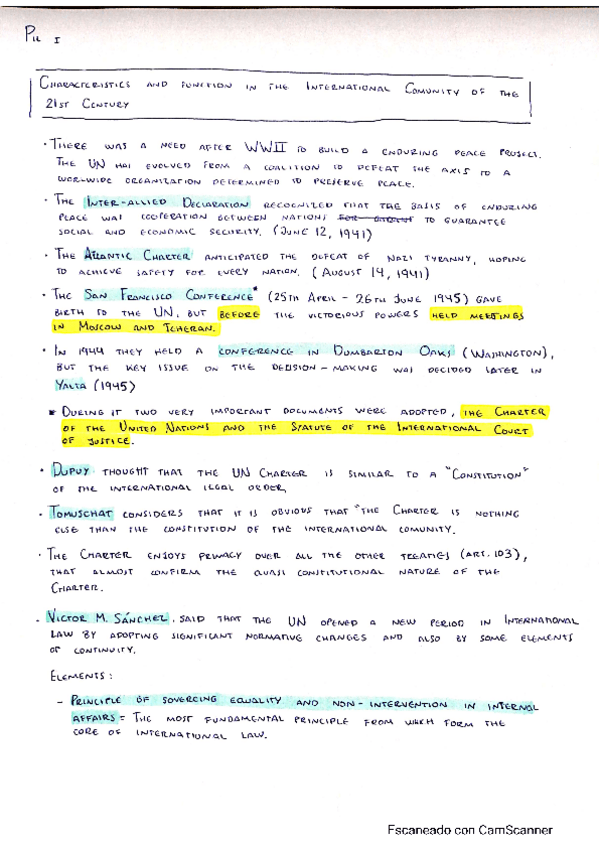 PIL I
CHARACTERISTICS AND FUNCTION IN THE INTERNATIONAL COMUNITY OF THE
21ST CENTURY
· THERE WAS A NEED AFTER WWII TO BUILD A ENDURING PEACE PROJECT.
THE UN HAS EVOLVED FROM A COALITION TO DEFEAT THE AXIS TO A
WORLWIDE ORGANIZATION DETERMINED TO PRESERVE PEACE.
· THE INTER-ALLIED DECLARATION RECOGNIZED THAT THE BASIS OF ENDURING
PEACE WAS COOPERATION BETWEEN NATIONS TO GUARANTEE
SOCIAL AND ECONOMIC SECURITY. (JUNE 12, 1941)
· THE ATLANTIC CHARTER ANTICIPATED THE DEFEAT OF NAZI TYRANNY, HOPING
TO ACHIEVE SAFETY FOR EVERY NATION. (AUGUST 14, 1941)
· THE SAN FRANCISCO CONFERENCE* (25TH APRIL - 26TH JUNE 1945) GAVE
BIRTH TO THE UN, BUT BEFORE THE VICTORIOUS POWERS HELD MEETINGS
IN MOSCOW AND TEHERAN.
· IN 1944 THEY HELD A CONFERENCE IN DUMBARTON OAKS (WASHINGTON),
BUT THE KEY ISSUE ON THE DECISION-MAKING WAS DECIDED LATER IN
YALTA (1945)
* DURING IT TWO VERY IMPORTANT DOCUMENTS WERE ADOPTED, THE CHARTER
OF THE UNITED NATIONS AND THE STATUTE OF THE INTERNATIONAL COURT
OF JUSTICE.
· DUPUY THOUGHT THAT THE UN CHARTER IS SIMILAR TO A "CONSTITUTION"
OF THE INTERNATIONAL LEGAL ORDER,
· TOMUSCHAT CONSIDERS THAT IT IS OBVIOUS THAT "THE CHARTER IS NOTHING
ELSE THAN THE CONSTITUTION OF THE INTERNATIONAL COMUNITY.
· THE CHARTER ENJOYS PRIMACY OVER ALL THE OTHER TREATIES (ART. 103),
THAT ALMOST CONFIRM THE QUASI CONSTITUTIONAL NATURE OF THE
CHARTER.
· VICTOR M. SÁNCHEZ, SAID THAT THE UN OPENED A NEW PERIOD IN INTERNATIONAL
LAW BY ADOPTING SIGNIFICANT NORMATIVE CHANGES AND ALSO BY SOME ELEMENTS
OF CONTINUITY.
ELEMENTS:
- PRINCIPLE OF SOVEREING EQUALITY AND NON-INTERVENTION IN INTERNAL
AFFAIRS = THE MOST FUNDAMENTAL PRINCIPLE FROM WHICH FORM THE
CORE OF INTERNATIONAL LAW.
Escaneado con CamScanner